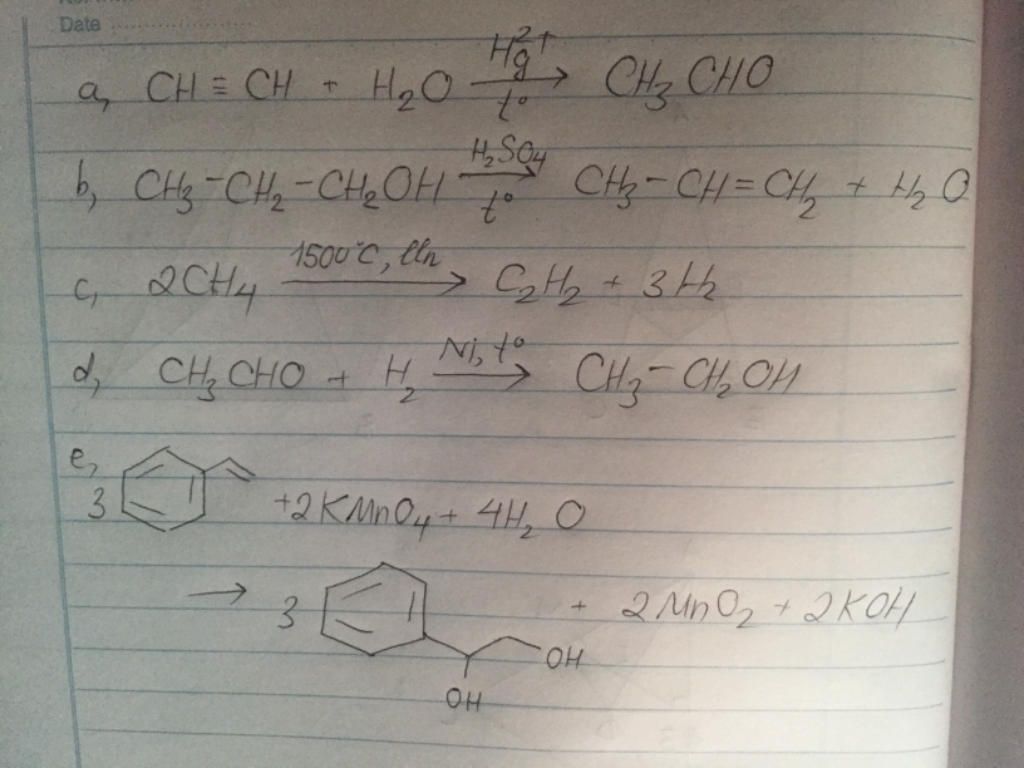 Date
a, CH ≡ CH + H₂O Hg²⁺ t° → CH₃CHO
b, CH₃-CH₂-CH₂OH H₂SO₄ t° → CH₃-CH=CH₂ + H₂O
c, 2CH₄ 1500°C, lln → C₂H₂ + 3H₂
d, CH₃CHO + H₂ Ni, t° → CH₃-CH₂OH
e,
3 +2KMnO₄ + 4H₂O
→ 3 OH OH + 2MnO₂ + 2KOH